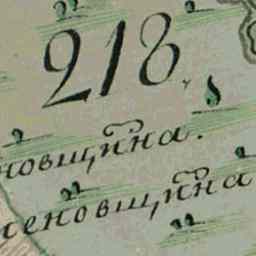 218.
новщина.
сеновщина